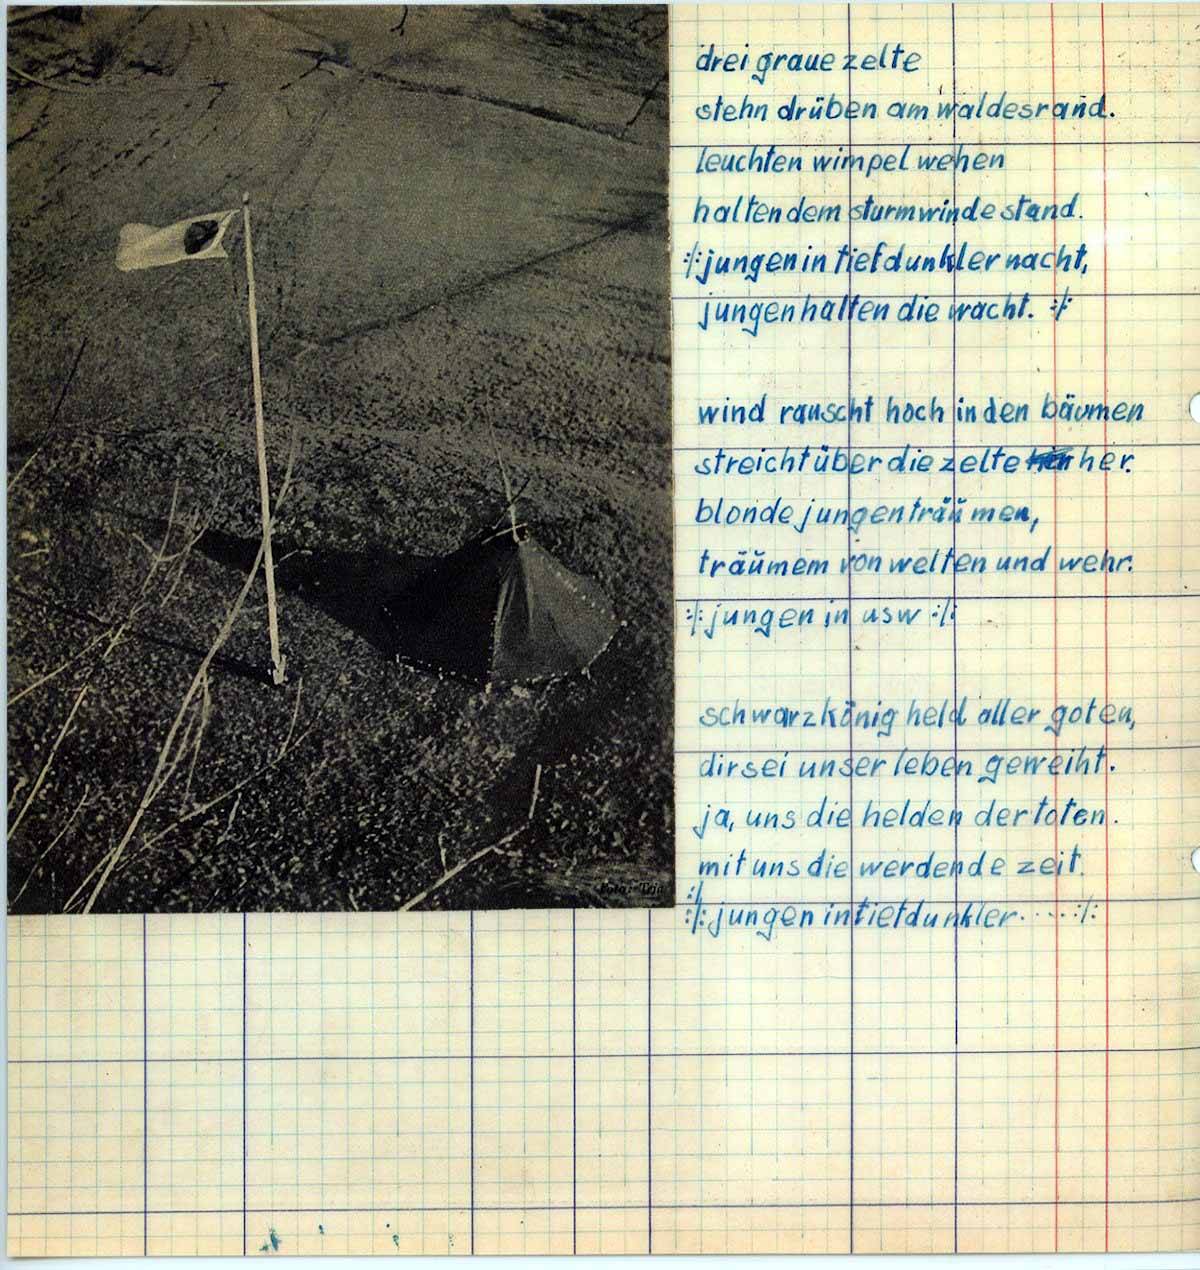 drei graue zelte
stehn drüben am waldesrand.
leuchten wimpel wehen
halten dem sturmwinde stand.
:/: jungen in tiefdunkler nacht,
jungen halten die wacht. :/:
wind rauscht hoch in den bäumen
streicht über die zelte her.
blonde jungen träumen,
träumem von welten und wehr.
:/: jungen in usw :/:
schwarzkönig held aller goten,
dir sei unser leben geweiht.
ja, uns die helden der toten.
mit uns die werdende zeit.
:/: jungen in tiefdunkler ..... :/:
Foto: Teja